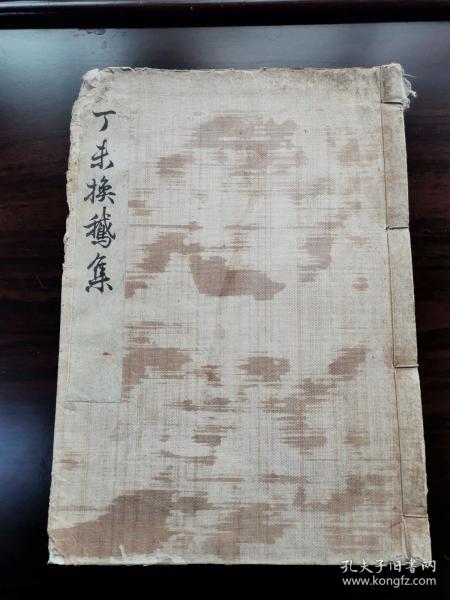 丁未换鹅集
孔夫子旧书网
www.kongfz.com